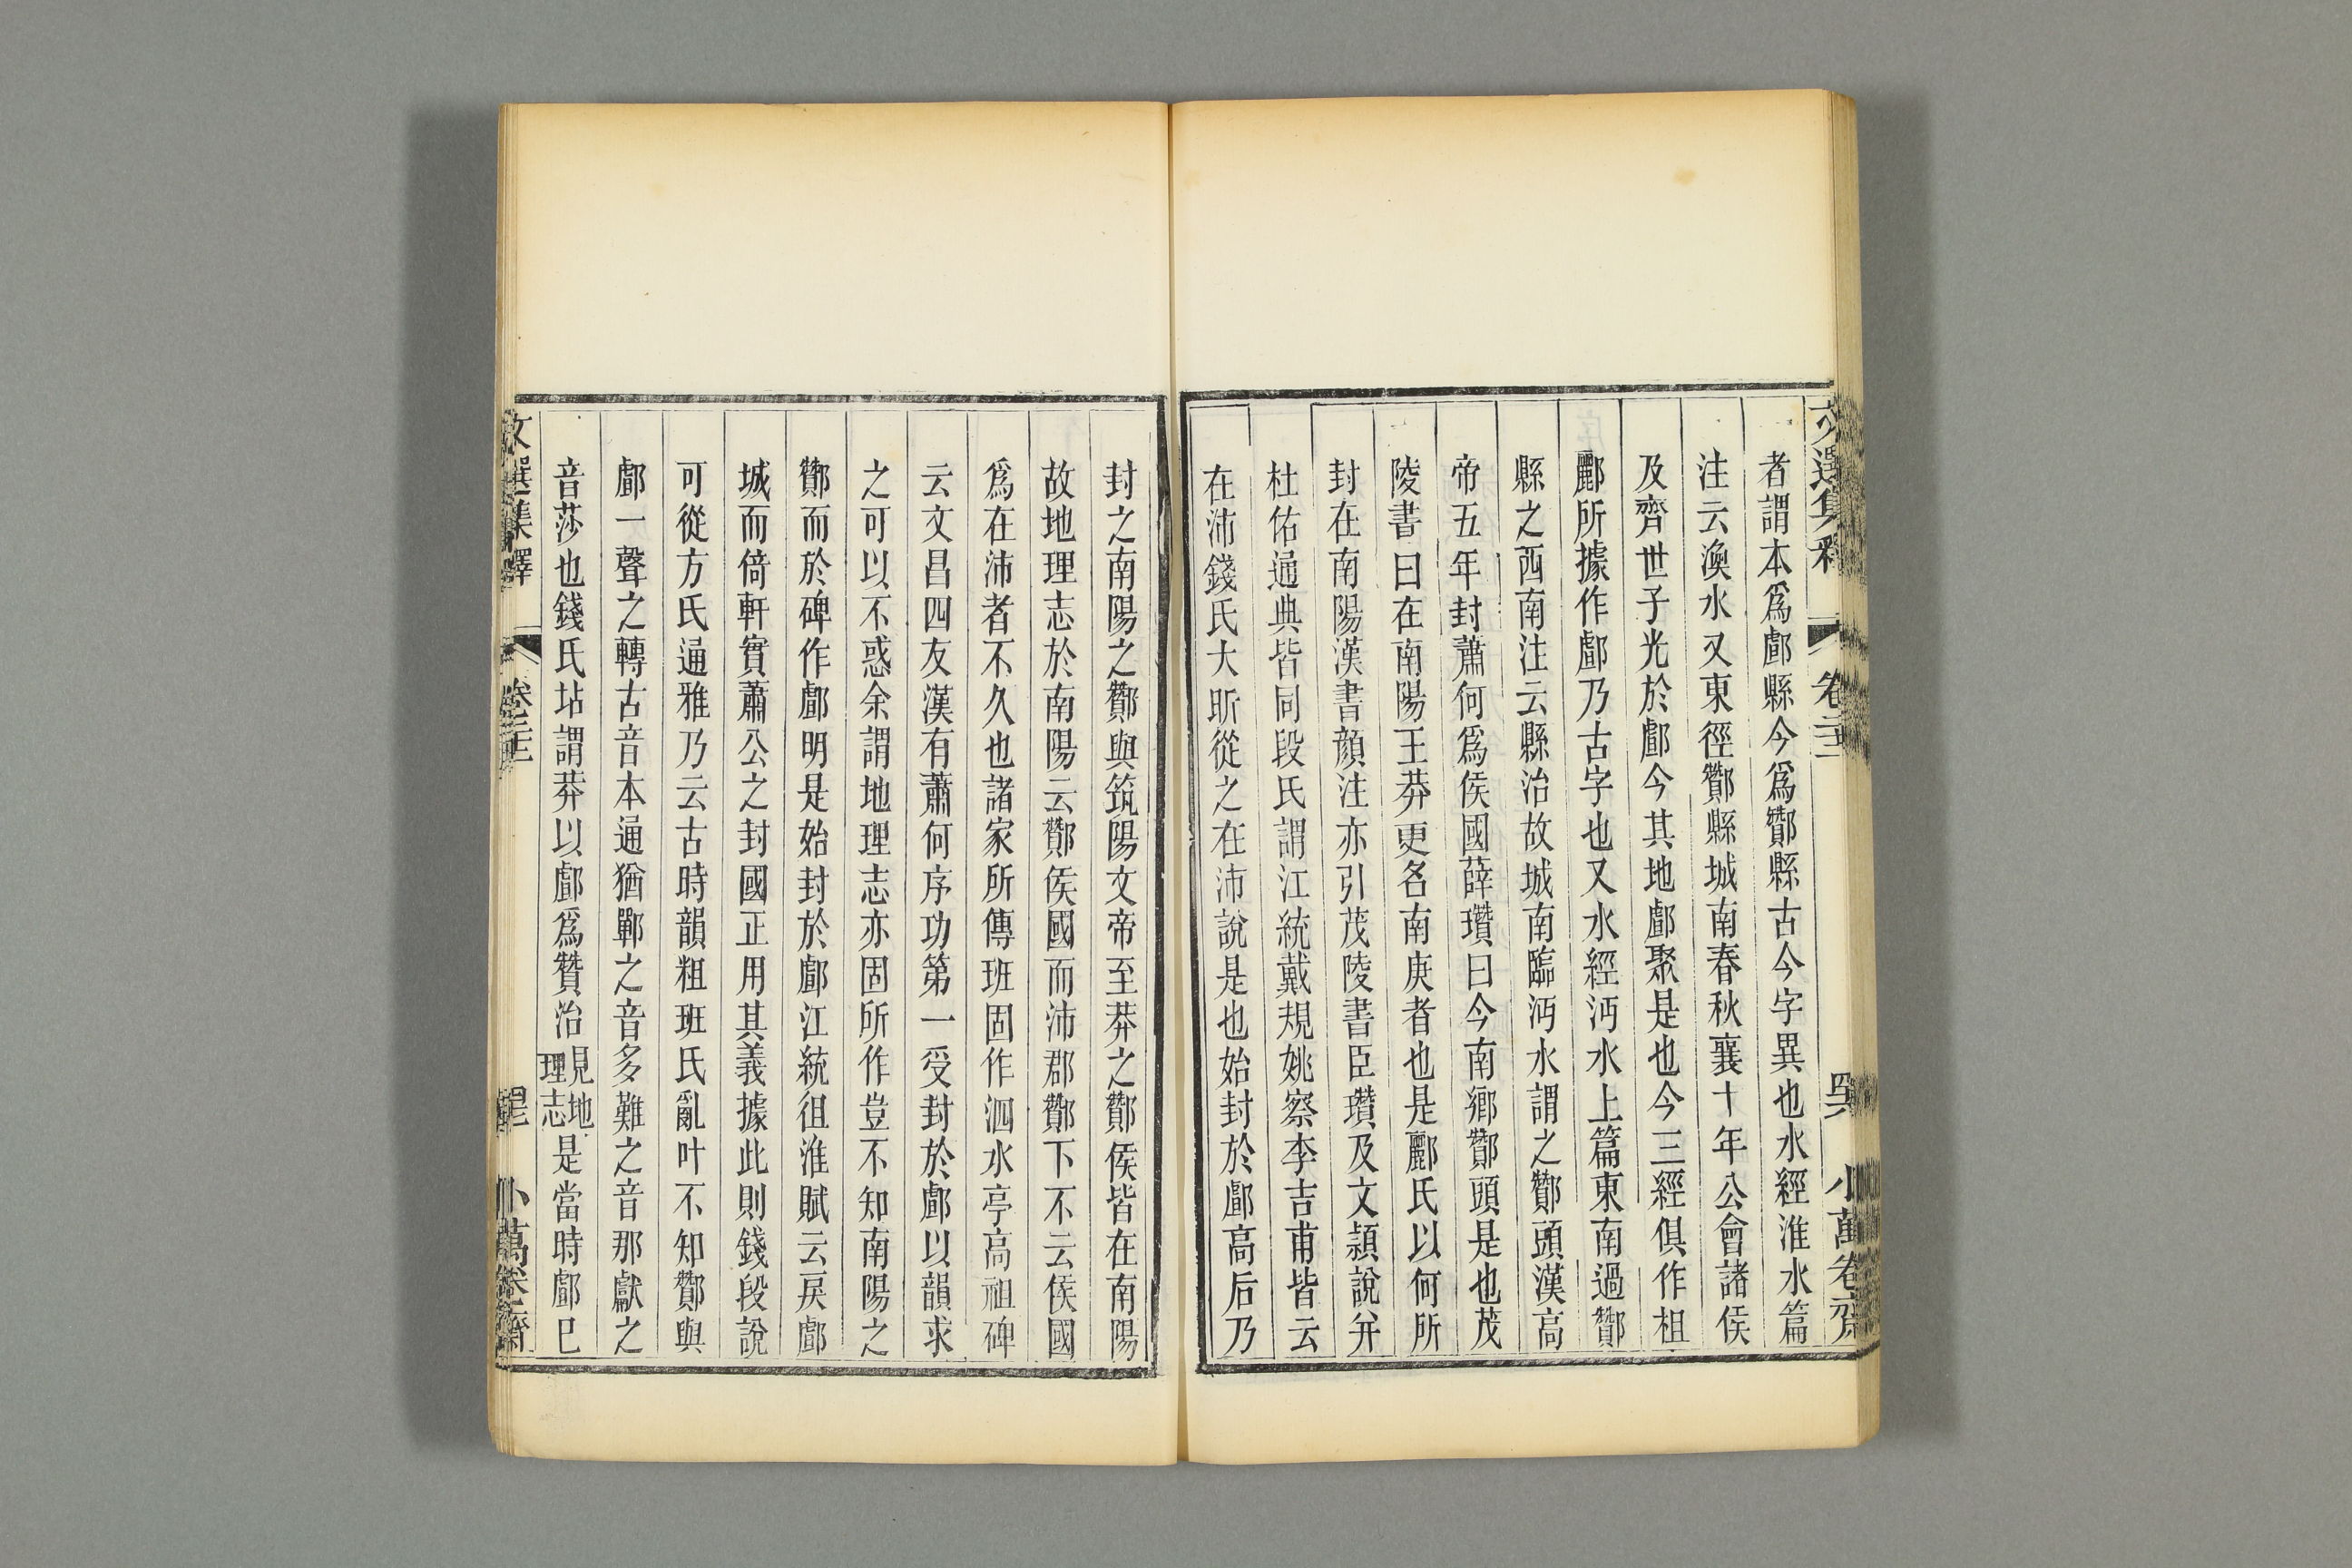 者謂本爲鄌縣今爲酇縣古今字異也水經淮水篇
注云渙水又東徑酇縣城南春秋襄十年公會諸侯
及齊世子光於鄌今其地鄌聚是也今三經俱作柤
酈所據作鄌乃古字也又水經沔水上篇東南過酇
縣之西南注云縣治故城南臨沔水謂之酇頭漢高
帝五年封蕭何爲侯國薛瓚曰今南鄉酇頭是也茂
陵書曰在南陽王莽更名南庚者也是酈氏以何所
封在南陽漢書顔注亦引茂陵書臣瓚及文潁說并
杜佑通典皆同段氏謂江統戴規姚察李吉甫皆云
在沛錢氏大昕從之在沛說是也始封於鄌高后乃
封之南陽之酇與筑陽文帝至莽之酇侯皆在南陽
故地理志於南陽云酇侯國而沛郡酇下不云侯國
爲在沛者不久也諸家所傳班固作泗水亭高祖碑
云文昌四友漢有蕭何序功第一受封於鄌以韻求
之可以不惑余謂地理志亦固所作豈不知南陽之
酇而於碑作鄌明是始封於鄌江統徂淮賦云戾鄌
城而倚軒實蕭公之封國正用其義據此則錢段說
可從方氏通雅乃云古時韻粗班氏亂叶不知酇與
鄌一聲之轉古音本通猶鄲之音多難之音那獻之
音莎也錢氏坫謂莽以鄌爲贊治見地理志是當時鄌巳
文選集釋 卷二十三 小萬卷齋